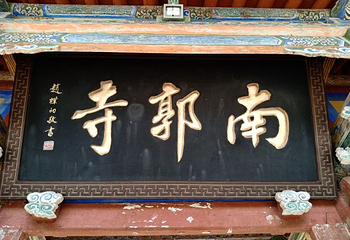 南郭寺
趙樸初敬書